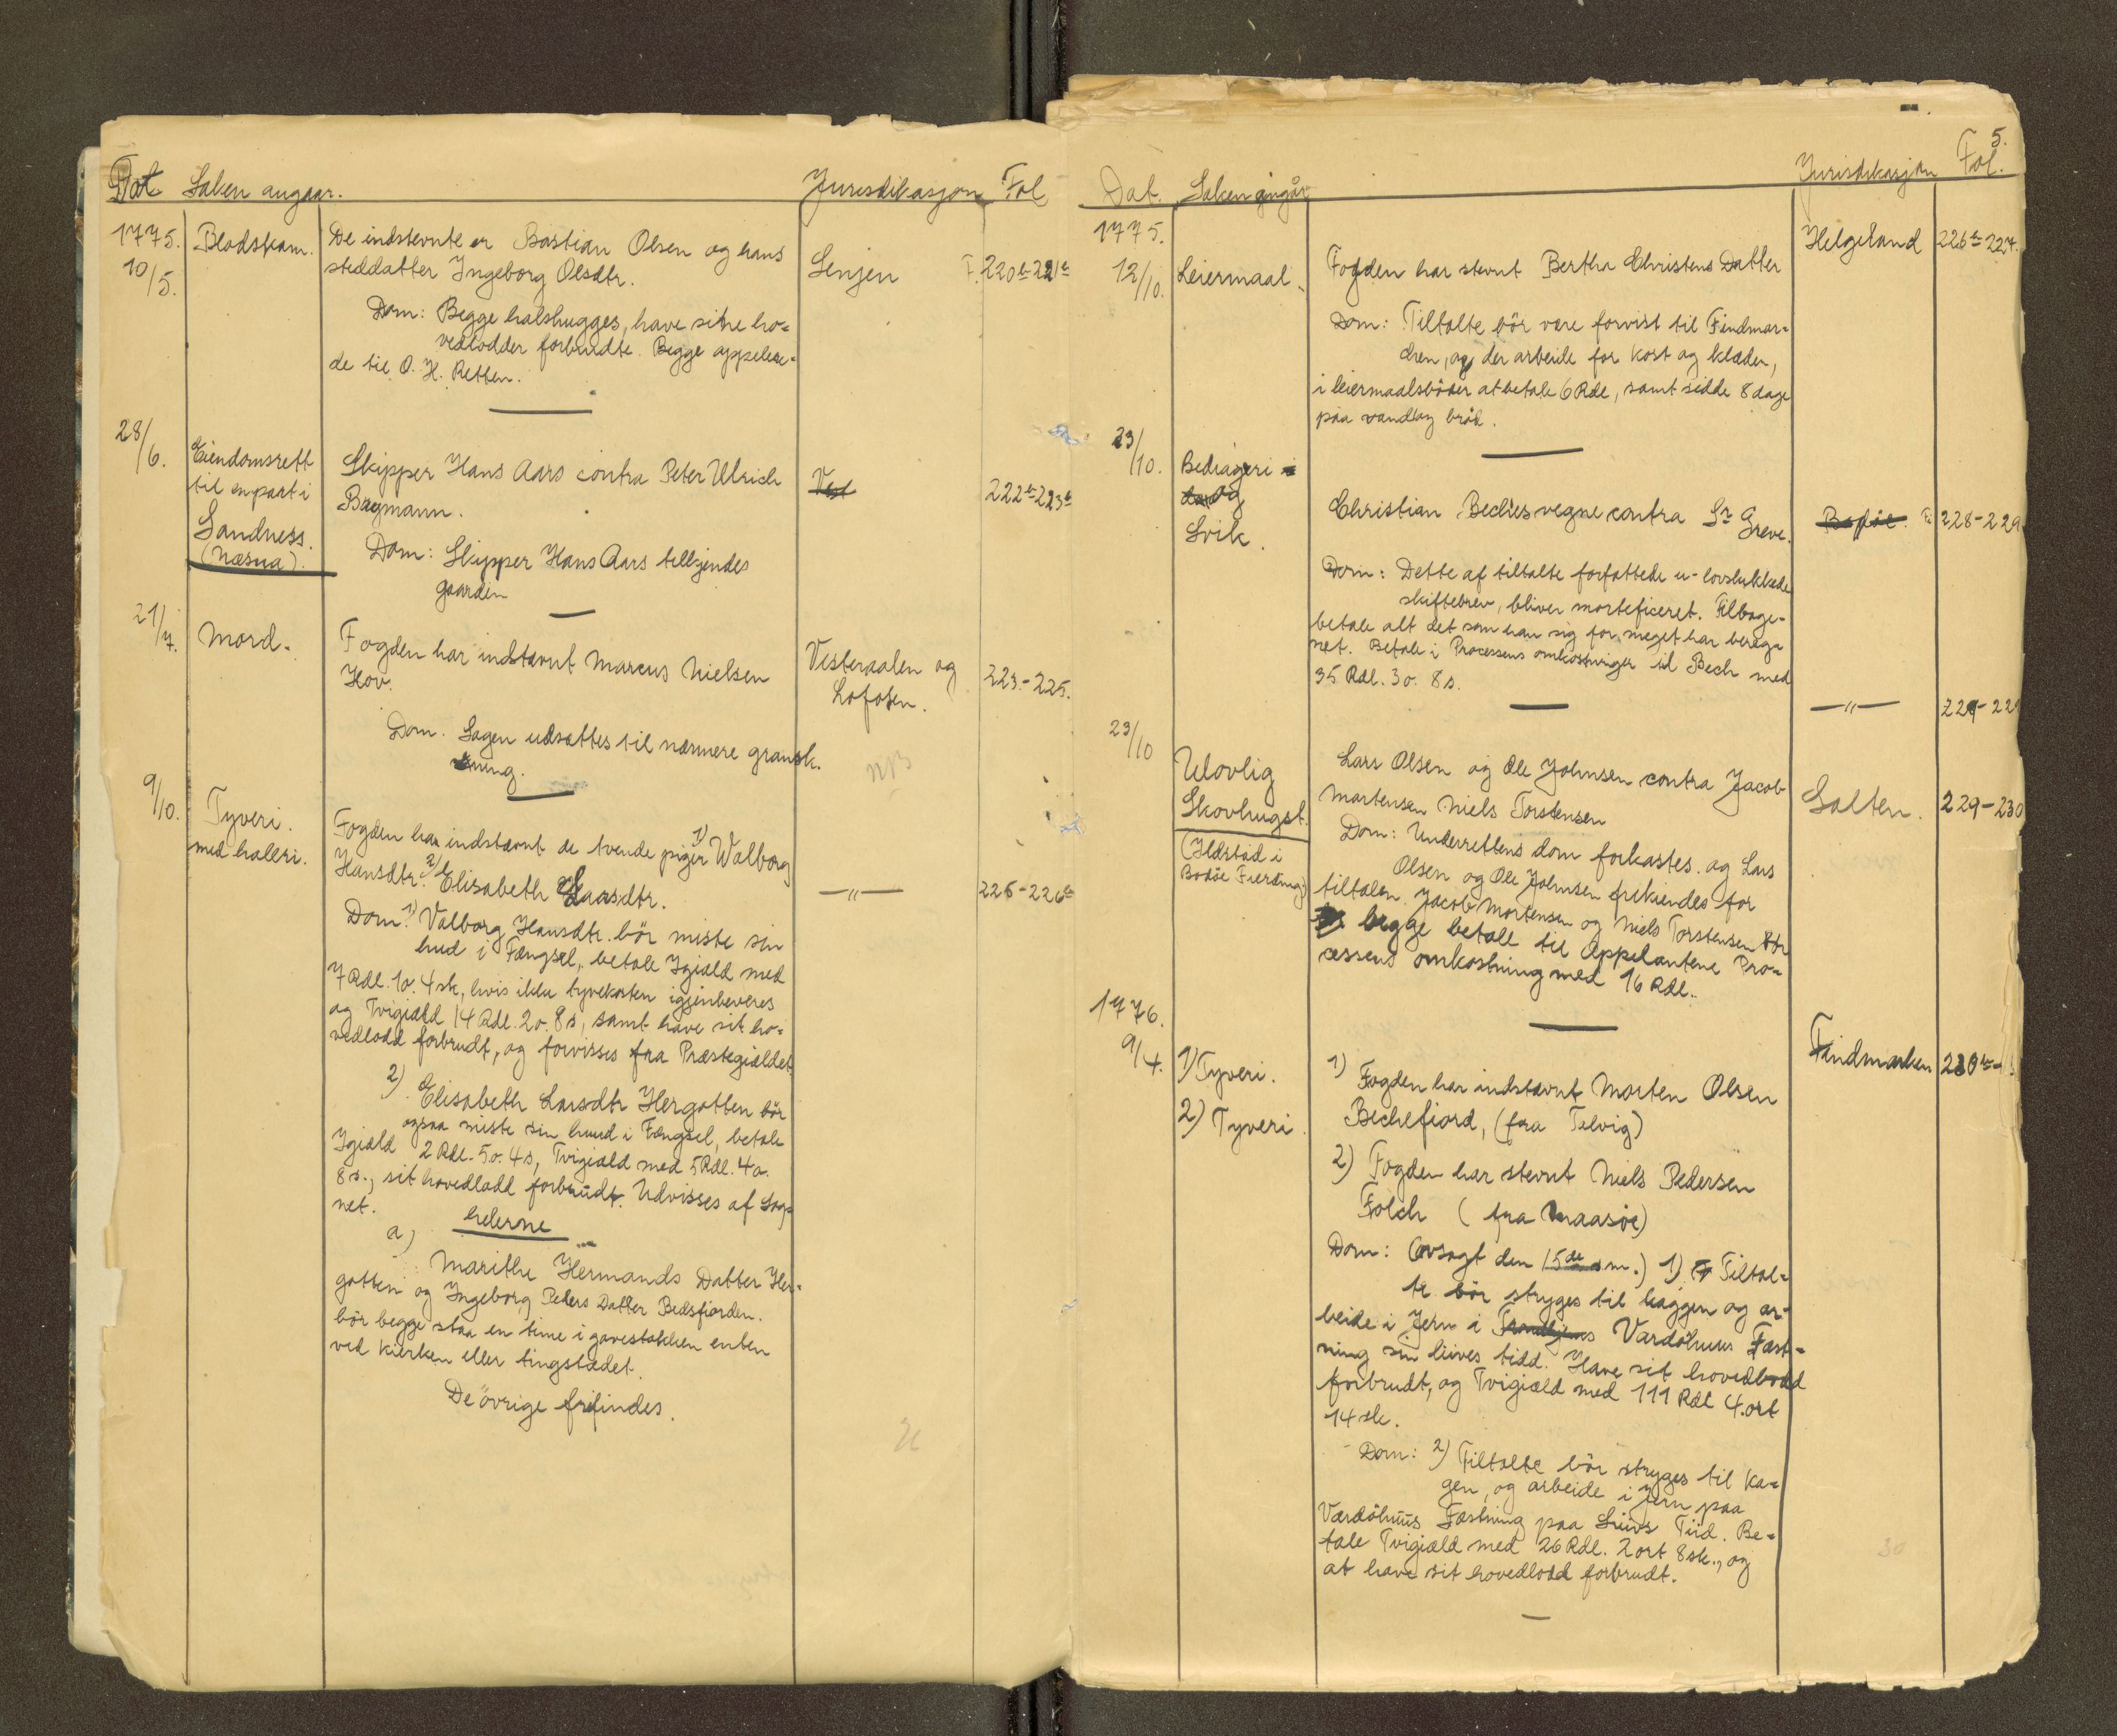 Dat Saken angaar. Jurisdikasjon Fol
1775. Blodskam. De indstevnte er Bastian Olsen og hans
10/5. steddatter Ingeborg Olsdtr. Senjen F. 220b-221b
Dom: Begge halshugges, have sine ho-
vedlodder forbrudte. Begge appelere-
de til O. H. Retten.
28/6. Eiendomsrett Skipper Hans Aars contra Peter Ulrich Vest
til en part i Bagmann. 222b-223b
Sandness. Dom: Skipper Hans Aars tilkjendes
(Næsna). gaarden
21/7. Mord. Fogden har indstævnt Marcus Nielsen Vesteraalen og
Hov. Lofoten. 223-225.
Dom. Sagen udsattes til nærmere gransk-
ning. NB
9/10. Tyveri. Fogden har indstævnt de tvende piger 1) Walborg
med hæleri. Hansdtr. 2) Elisabeth Larsdtr. —"— 226-226b
Dom 1) Valborg Hansdtr. bör miste sin
hud i Fængsel, betale Igiæld med
7 Rdl. 1o. 4 sk, hvis ikke tyvekosten igjenleveres
og Tvigiæld 14 Rdl. 2o. 8s, samt have sit ho-
vedlodd forbrudt, og forvisses fra Præstegiældet.
2) Elisabeth Larsdtr Hergotten bör
ogsaa miste sin huud i Fængsel, betale
Igiæld 2 Rdl. 5o. 4s, Tvigiæld med 5 Rdl. 4o.
8s., sit hovedlodd forbrudt. Udvisses af Sog-
net.
a) helerne
Marithe Hermands Datter Her-
gotten og Ingeborg Peders Datter Bedsfiorden.
bör begge staa en time i gavestokken enten
ved kierken eller tingstædet.
De övrige frifindes.
5.
Dat. Saken angår Jurisdikasjon Fol.
1775. Helgeland 226b-227.
12/10. Leiermaal. Fogden har stevnt Bertha Christens Datter
Dom: Tiltalte bör være forvist til Findmar-
chen, og der arbeide for kost og klæder,
i leiermaalsböder at betale 6 Rdl, samt sidde 8 dage
paa vand og bröd.
23/10. Bedrageri
og
Svik. Christian Bechs vegne contra Sr Greve. 228-229
Dom: Dette af tiltalte forfattede u-lovslukkede
skiftebrev, bliver mortificeret. Tilbage-
betale alt det som han sig for meget har bereg-
net. Betale i Processens omkostninger til Bech med
35 Rdl. 3o. 8s.
—"— 229-229
23/10 Ulovlig Lars Olsen og Ole Johnsen contra Jacob
Skovhugst. Mortensen Niels Torstensen Salten. 229-230
(Ildstad i Dom: Underrettens dom forkastes. og Lars
Bodöe Fierding) Olsen og Ole Johnsen frikiendes for
tiltalen. Jacob Mortensen og Niels Torstensen bör
begge betale til Appelantene Pro-
cessens omkostning med 16 Rdl.
1776. Findmarken 230b-
9/4. 1) Tyveri. 1) Fogden har indstævnt Morten Olsen
2) Tyveri. Bechefiord, (fra Telvig)
2) Fogden har stevnt Niels Pedersen
Folch (fra Maasöe)
Dom: (Avsagt den 15de s m.) 1) Tiltal-
te bör stryges til kaggen og ar-
beide i Jern i Trondhjems Vardöhuus Fæst-
ning sin livees tidd. Have sit hovedlodd
forbrudt, og Tvigiæld med 111 Rdl 4. ort
14 sk.
Dom: 2) Tiltalte bör stryges til Ka-
gen, og arbeide i Jern paa
Værdöhuus Fæstning paa Liivs Tiid. Be-
tale Tvigiæld med 26 Rdl. 2 ort 8 sk., og
at have sit hovedlodd forbrudt.
30